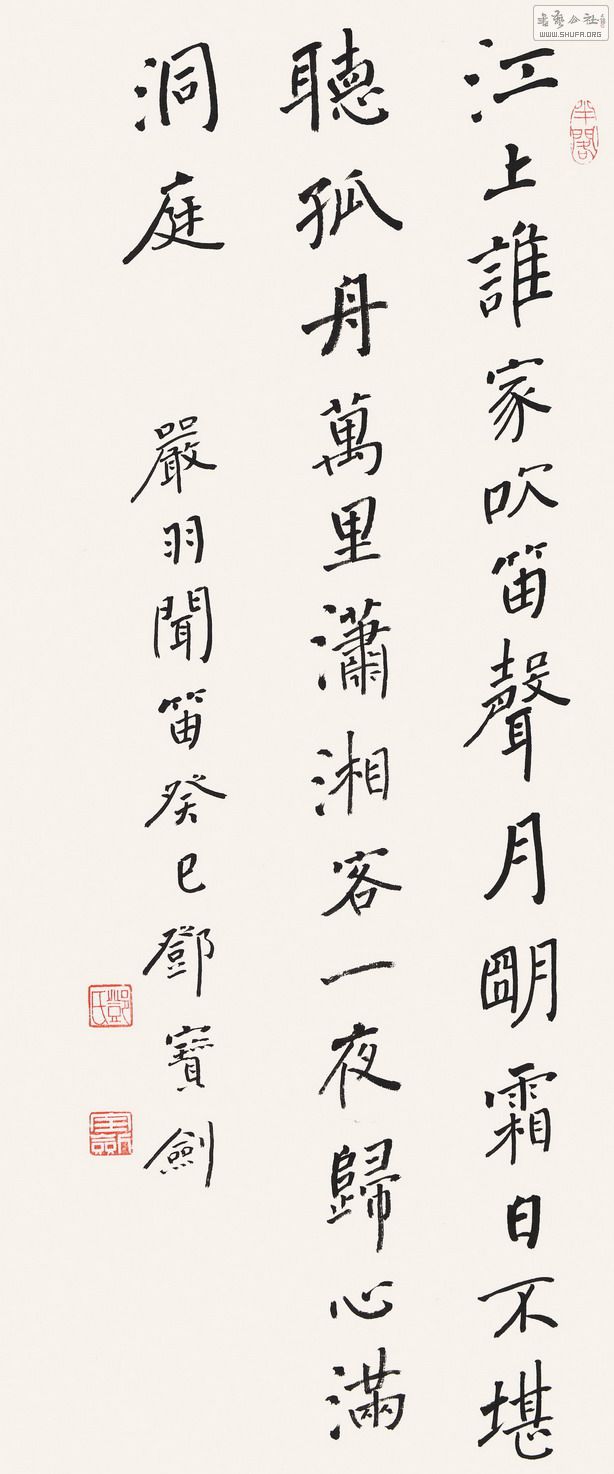 書藝公社
WWW.SHUFA.ORG
半閣
江上誰家吹笛聲月朙霜白不堪
聽孤舟萬里瀟湘客一夜歸心滿
洞庭 嚴羽聞笛癸巳鄧寶劍
鄧氏